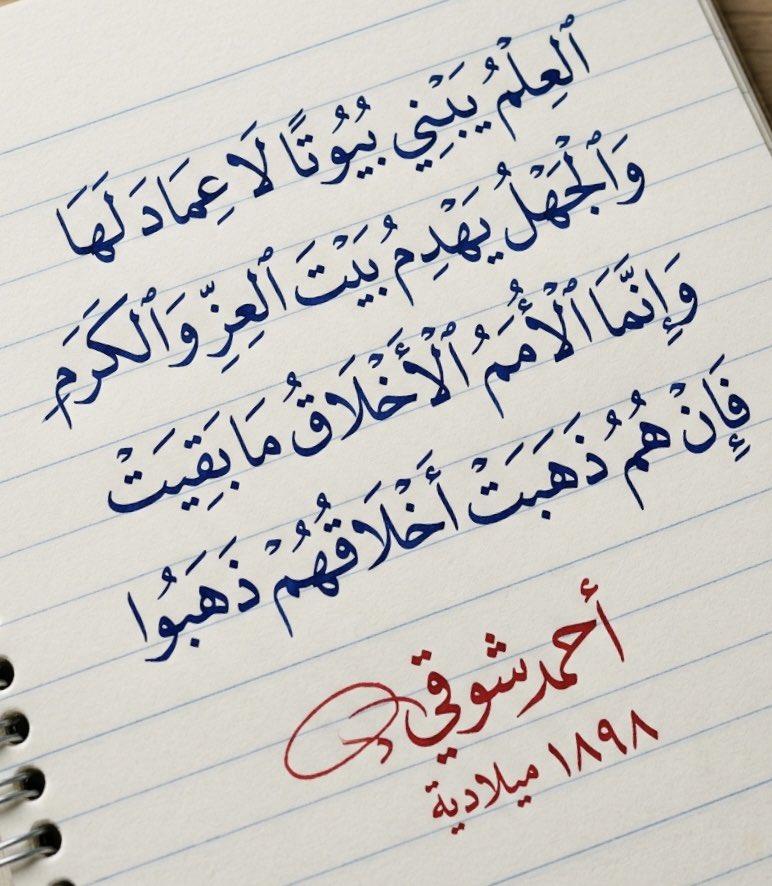 ٱلْعِلْمُ يَبْنِي بُيُوتًا لَا عِمَادَ لَهَا
وَٱلْجَهْلُ يَهْدِمُ بَيْتَ ٱلْعِزِّ وَٱلْكَرَمِ
وَإِنَّمَا ٱلْأُمَمُ ٱلْأَخْلَاقُ مَا بَقِيَتْ
فَإِنْ هُمُ ذَهَبَتْ أَخْلَاقُهُمْ ذَهَبُوا
أحمد شوقي
١٨٩٨ ميلادية